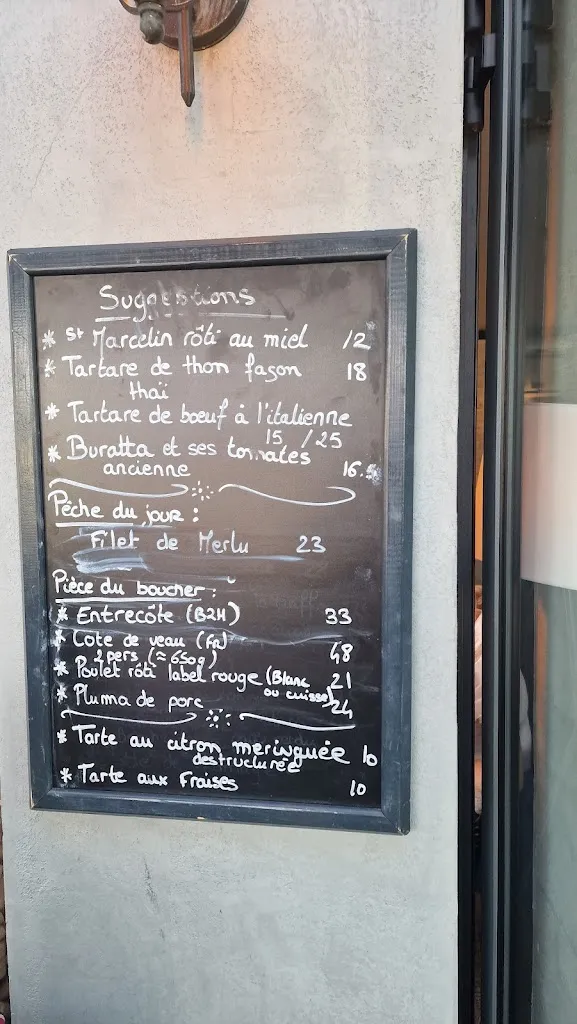 Suggestions
* St Marcelin rôti au miel 12
* Tartare de thon façon 18
thaï
* Tartare de bœuf à l'italienne
15 / 25
* Buratta et ses tomates
ancienne 16.5
Pêche du jour :
Filet de Merlu 23
Pièce du boucher :
* Entrecôte (B2H) 33
* Cote de veau (FR) 48
2 pers (≈ 650g)
* Poulet rôti label rouge (Blanc 21
ou cuisse)
* Pluma de porc 24
* Tarte au citron meringuée 10
destructurée
* Tarte aux Fraises 10